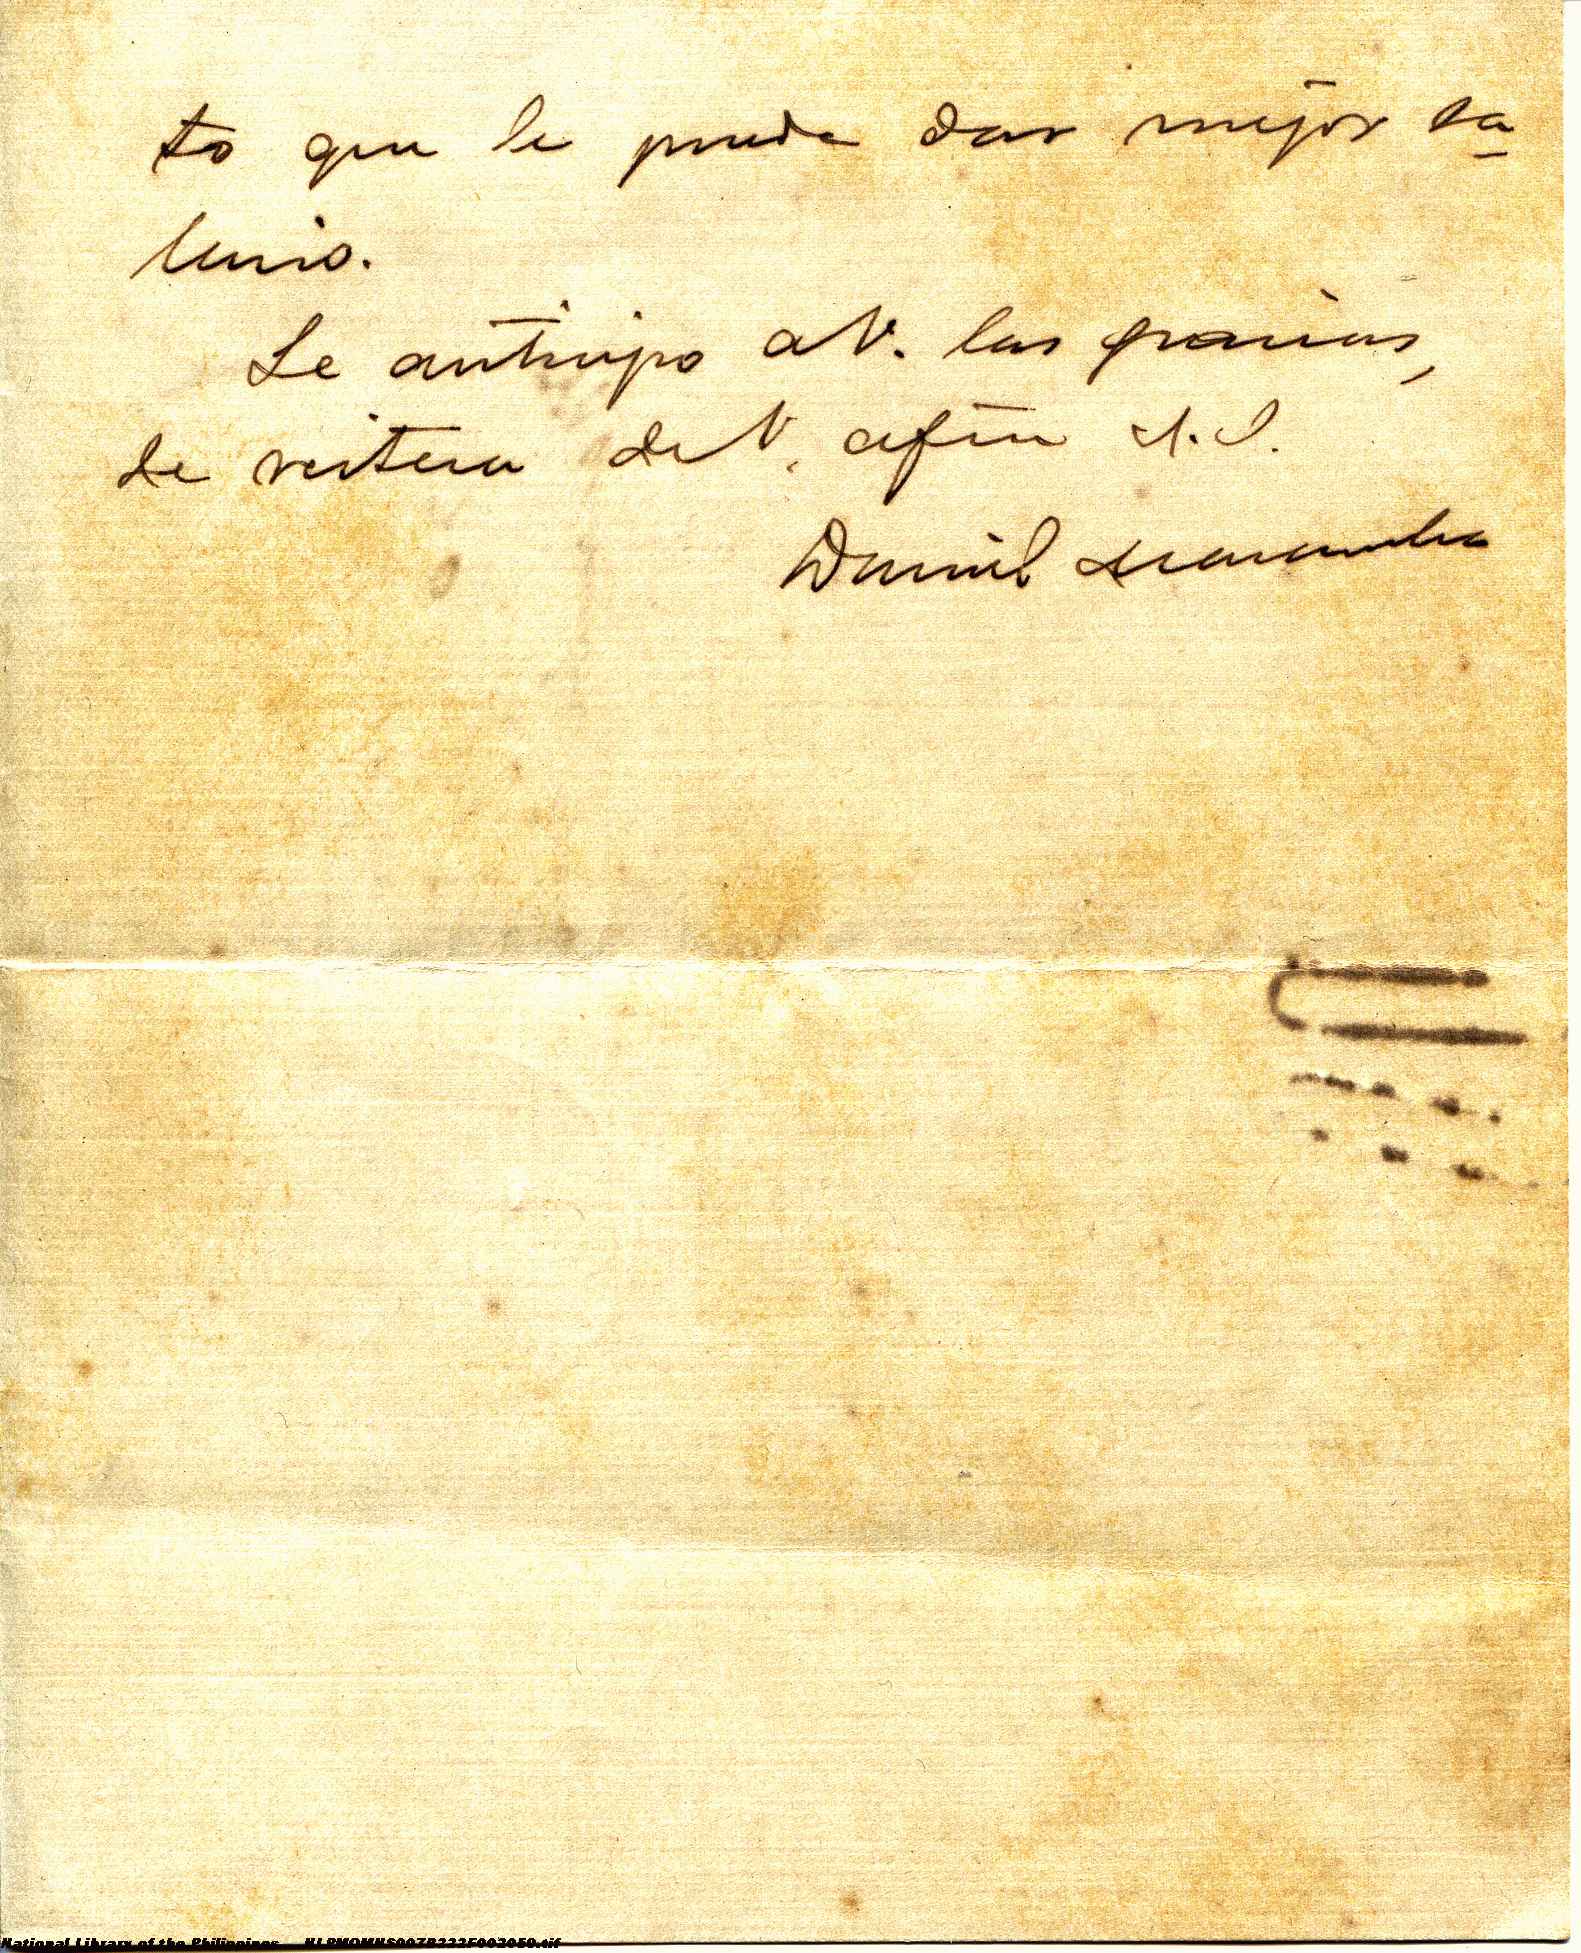 to que le pueda dar mejor sa
lario.
Le anticipo a V. las gracias,
se reitera de V. afmo s.s.
Daniel Maramba
National Library of the Philippines